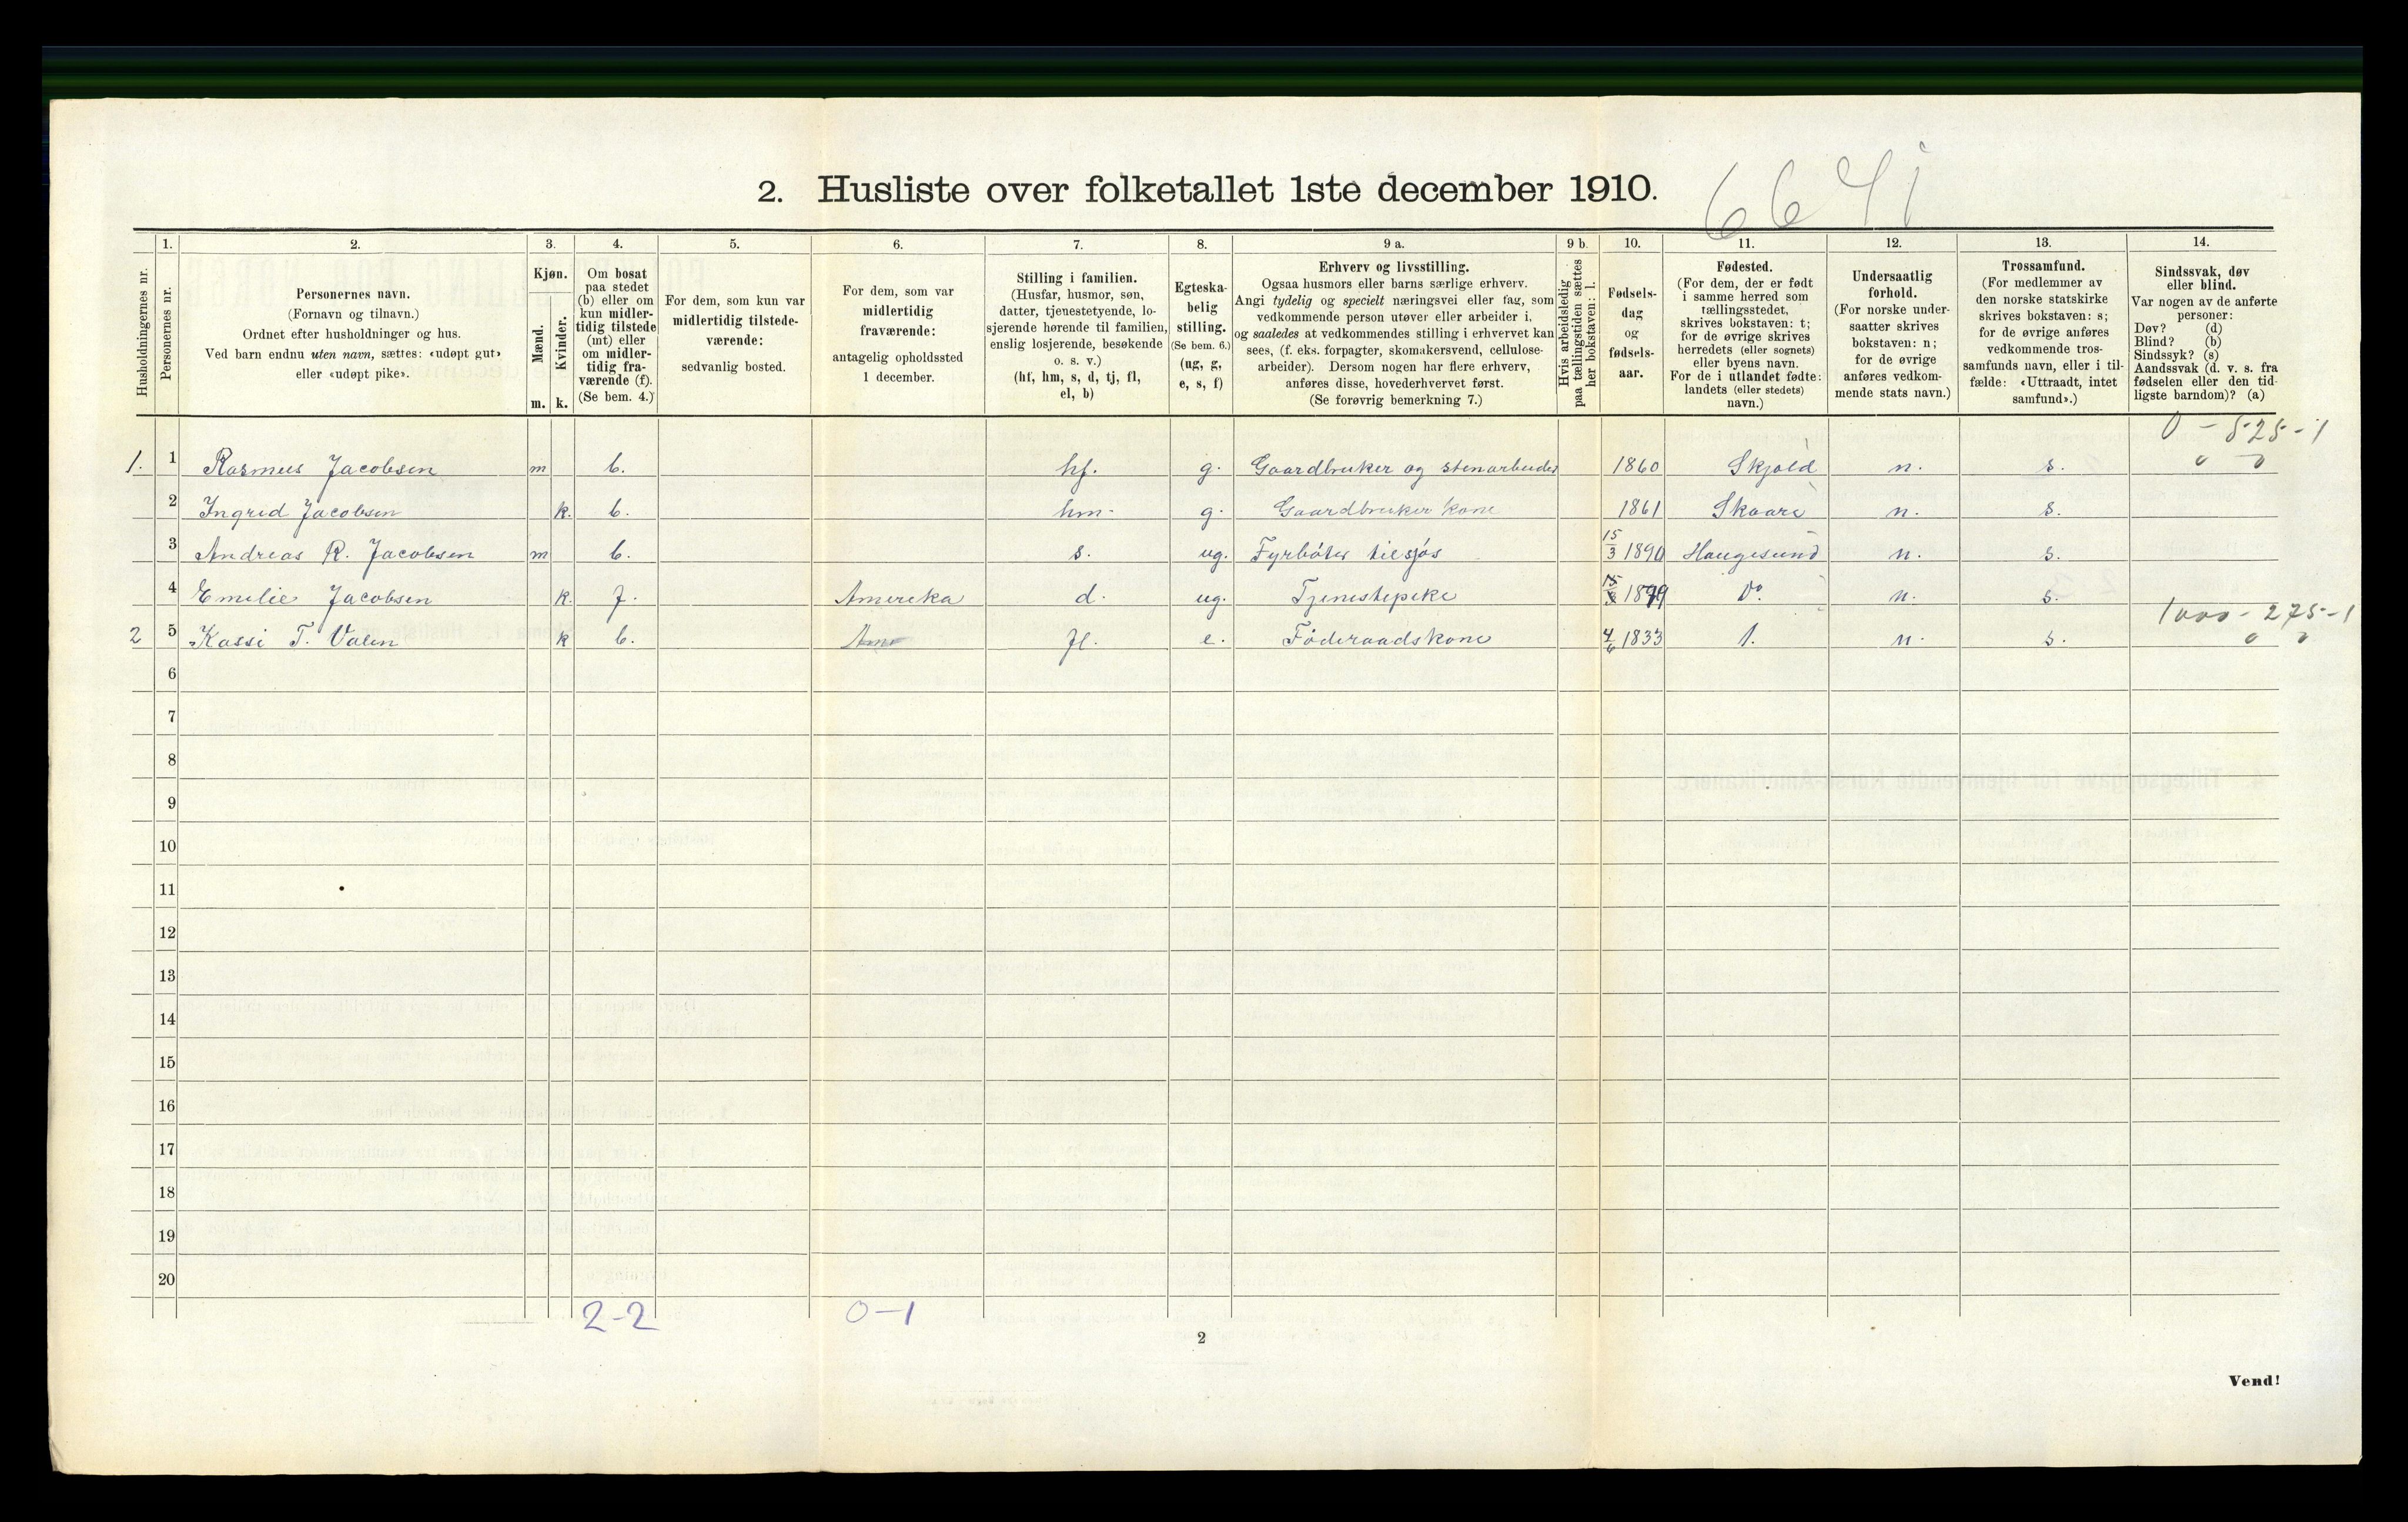 2. Husliste over folketallet 1ste december 1910.
1. 2. 3. 4. 5. 6. 7. 8. 9 a. 9 b. 10. 11. 12. 13. 14.
Husholdningernes nr.
Personernes nr.
Personernes navn.
(Fornavn og tilnavn.)
Ordnet efter husholdninger og hus.
Ved barn endnu uten navn, sættes: «udøpt gut»
eller «udøpt pike».
Kjøn.
Mænd.
Kvinder.
m. k.
Om bosat
paa stedet
(b) eller om
kun midler-
tidig tilstede
(mt) eller
om midler-
tidig fra-
værende (f).
(Se bem. 4.)
For dem, som kun var
midlertidig tilstede-
værende:
sedvanlig bosted.
For dem, som var
midlertidig
fraværende:
antagelig opholdssted
1 december.
Stilling i familien.
(Husfar, husmor, søn,
datter, tjenestetyende, lo-
sjerende hørende til familien,
enslig losjerende, besøkende
o. s. v.)
(hf, hm, s, d, tj, fl,
el, b)
Egteska-
belig
stilling.
(Se bem. 6.)
(ug, g,
e, s, f)
Erhverv og livsstilling.
Ogsaa husmors eller barns særlige erhverv.
Angi tydelig og specielt næringsvei eller fag, som
vedkommende person utøver eller arbeider i,
og saaledes at vedkommendes stilling i erhvervet kan
sees, (f. eks. forpagter, skomakersvend, cellulose-
arbeider). Dersom nogen har flere erhverv,
anføres disse, hovederhvervet først.
(Se forøvrig bemerkning 7.)
Hvis arbeidsledig
paa tællingstiden sættes
her bokstaven: l.
Fødsels-
dag
og
fødsels-
aar.
Fødested.
(For dem, der er født
i samme herred som
tællingsstedet,
skrives bokstaven: t;
for de øvrige skrives
herredets (eller sognets)
eller byens navn.
For de i utlandet fødte:
landets (eller stedets)
navn.)
Undersaatlig
forhold.
(For norske under-
saatter skrives
bokstaven: n;
for de øvrige
anføres vedkom-
mende stats navn.)
Trossamfund.
(For medlemmer av
den norske statskirke
skrives bokstaven: s;
for de øvrige anføres
vedkommende tros-
samfunds navn, eller i til-
fælde: «Uttraadt, intet
samfund».)
Sindssvak, døv
eller blind.
Var nogen av de anførte
personer:
Døv? (d)
Blind? (b)
Sindssyk? (s)
Aandssvak (d. v. s. fra
fødselen eller den tid-
ligste barndom)? (a)
0 - 525 - 1
1. 1 Rasmus Jacobsen m b. hf. g. Gaardbruker og stenarbeider 1860 Skjold n. s. 0 0
2 Ingrid Jacobsen k. b. hm. g. Gaardbruker kone 1861 Skaare n. s.
3 Andreas R. Jacobsen m b. s. ug. Fyrbøter tilsjøs 15/3 1890 Haugesund n. s.
4 Emelie Jacobsen k. f. Amereka d. ug. Tjenestepeke 1899 Do. n. s.
1000 - 275 - 1
2 5 Kassi T. Valen k b. Am fl. e. Føderaadskone 4/6 1833 1. n. s. 0 0
6
7
8
9
10
11
12
13
14
15
16
17
18
19
20
2-2 0-1
2
Vend!